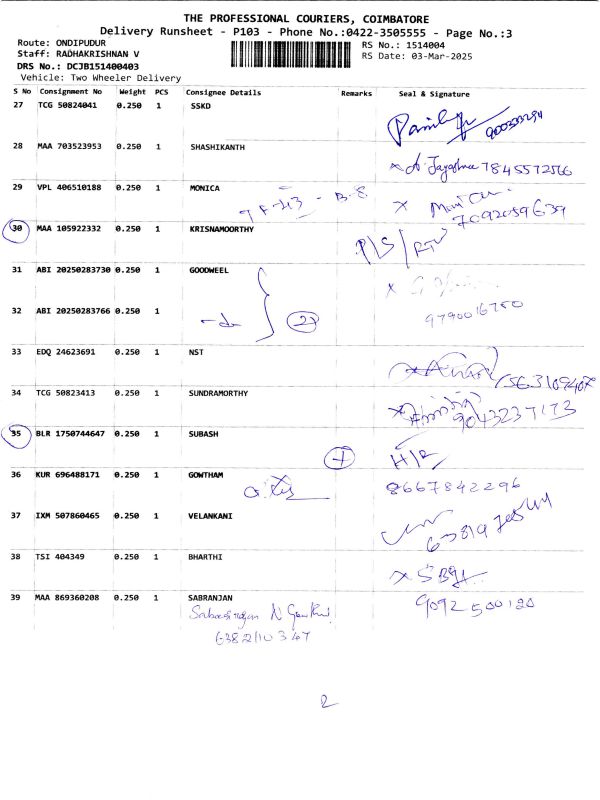 THE PROFESSIONAL COURIERS, COIMBATORE
Delivery Runsheet - P103 - Phone No.:0422-3505555 - Page No.:3
Route: ONDIPUDUR
RS No.: 1514004
Staff: RADHAKRISHNAN V
RS Date: 03-Mar-2025
DRS No.: DCJB151400403
Vehicle: Two Wheeler Delivery
S No Consignment No Weight PCS Consignee Details Remarks Seal & Signature
27 TCG 50824041 0.250 1 SSKD
28 MAA 703523953 0.250 1 SHASHIKANTH
7845572566
29 VPL 406510188 0.250 1 MONICA
7092059639
30 MAA 105922332 0.250 1 KRISNAMOORTHY
P/S / RTV
31 ABI 20250283730 0.250 1 GOODWEEL
32 ABI 20250283766 0.250 1
9790016750
33 EDQ 24623691 0.250 1 NST
34 TCG 50823413 0.250 1 SUNDRAMORTHY
9043237173
35 BLR 1750744647 0.250 1 SUBASH
36 KUR 696488171 0.250 1 GOWTHAM
8667842296
37 IXM 507860465 0.250 1 VELANKANI
38 TSI 404349 0.250 1 BHARTHI
39 MAA 869360208 0.250 1 SABRANJAN
9092500120
6382110347
2